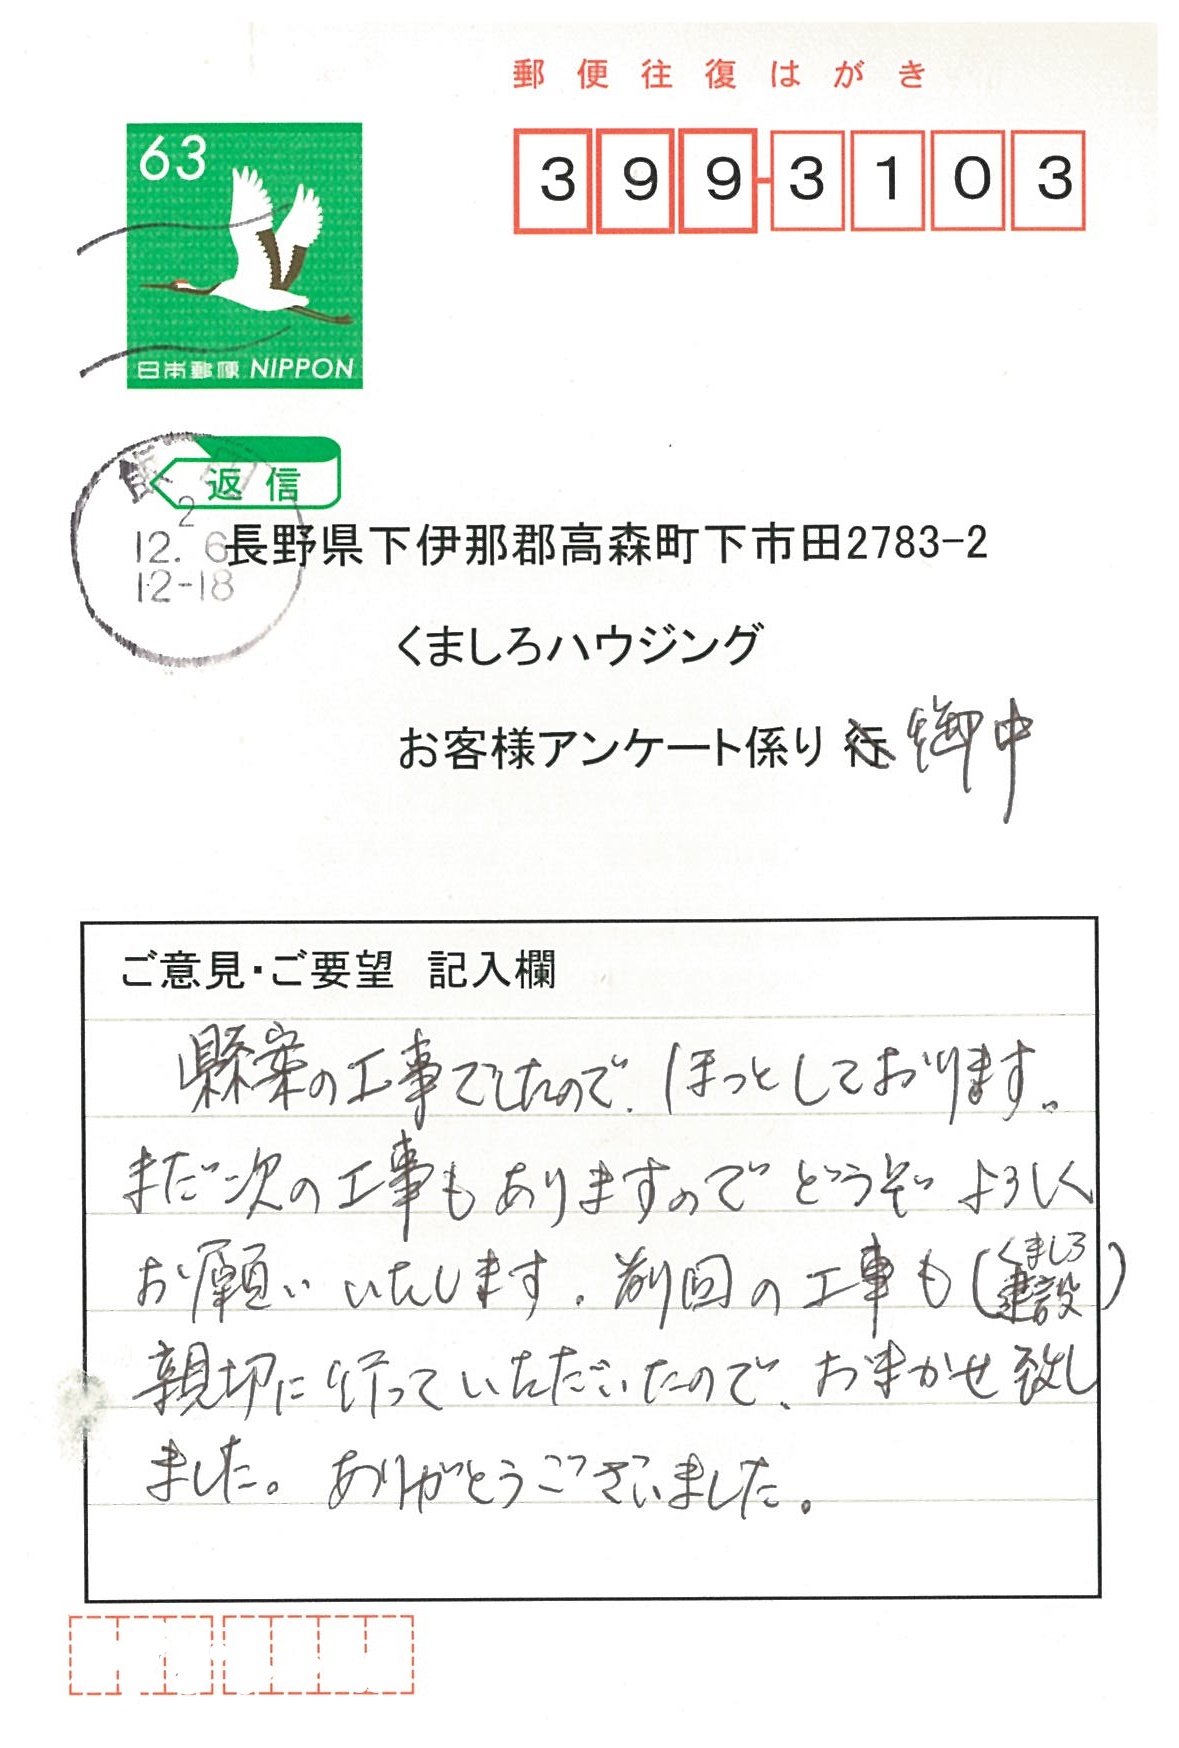 郵便往復はがき
63
399-3103
日本郵便 NIPPON
返信
飯田
2
12. 6
12-18
長野県下伊那郡高森町下市田2783-2
くましろハウジング
お客様アンケート係り 行 御中
ご意見・ご要望 記入欄
懸案の工事でしたので、ほっとしております。
まだ次の工事もありますのでどうぞよろしく
お願いいたします。前回の工事も(くましろ建設)
親切に行っていただいたので、おまかせ致し
ました。ありがとうございました。